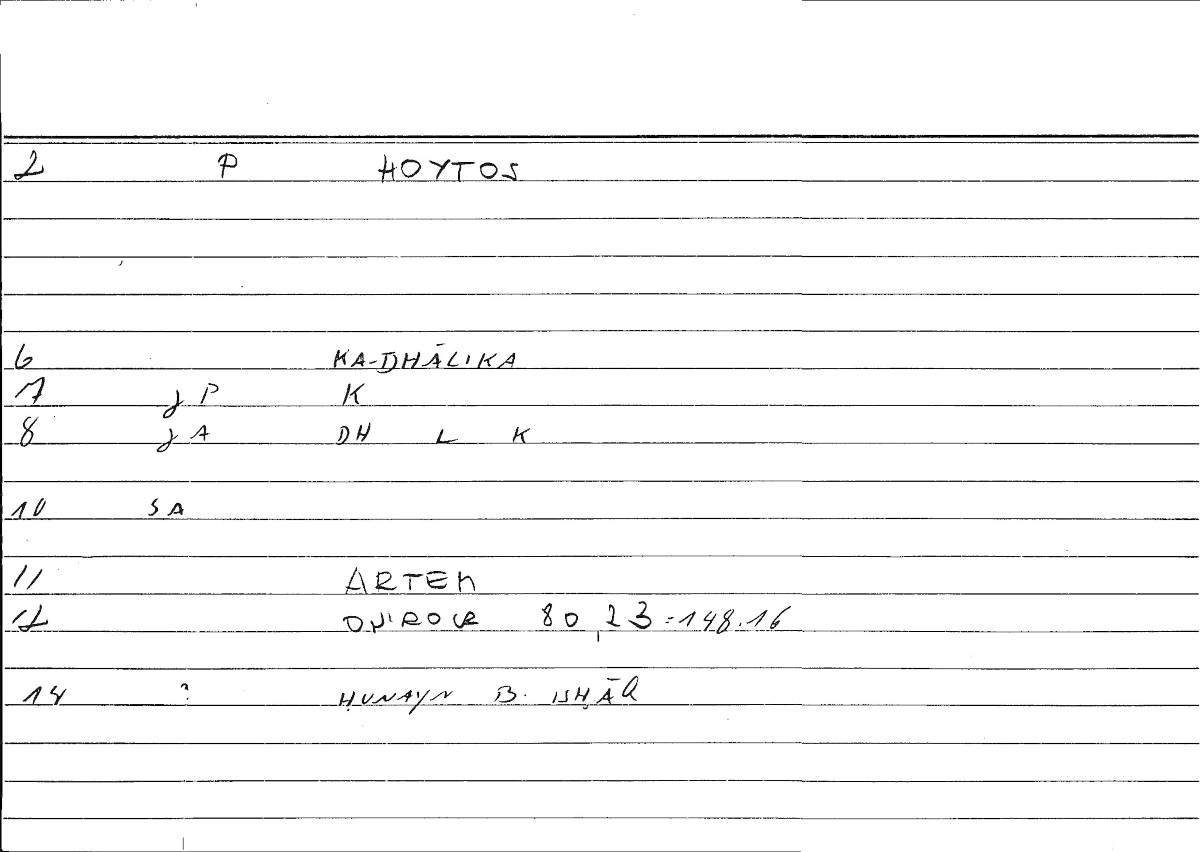 2 P HOYTOS
6 KA-DHĀLIKA
7 J P K
8 J A DH L K
10 S A
11 ARTEM
12 80,23 = 148.16
14 ? ḤUNAYN B. ISḤĀQ